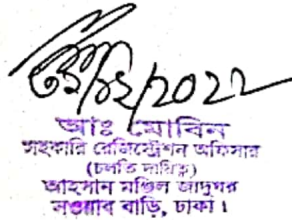 ২২/১২/২০২২
আঃ মোবিন
সহকারি রেজিস্ট্রেশন অফিসার
(চলতি দায়িত্ব)
আহসান মঞ্জিল জাদুঘর
নওয়াব বাড়ি, ঢাকা।